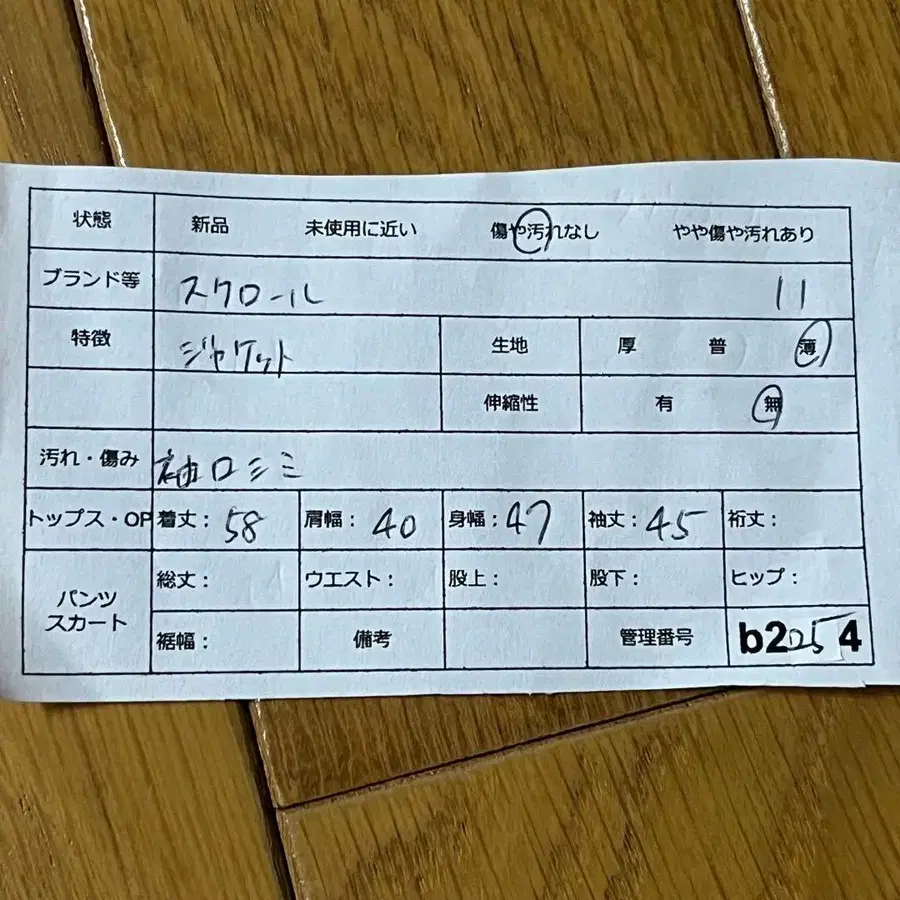 状態 新品 未使用に近い 傷や汚れなし やや傷や汚れあり
ブランド等 スクロール 11
特徴 ジャケット 生地 厚 普 薄
伸縮性 有 無
汚れ・傷み 袖口シミ
トップス・OP 着丈: 58 肩幅: 40 身幅: 47 袖丈: 45 裄丈:
パンツ スカート 総丈: ウエスト: 股上: 股下: ヒップ:
裾幅: 備考 管理番号 b2054